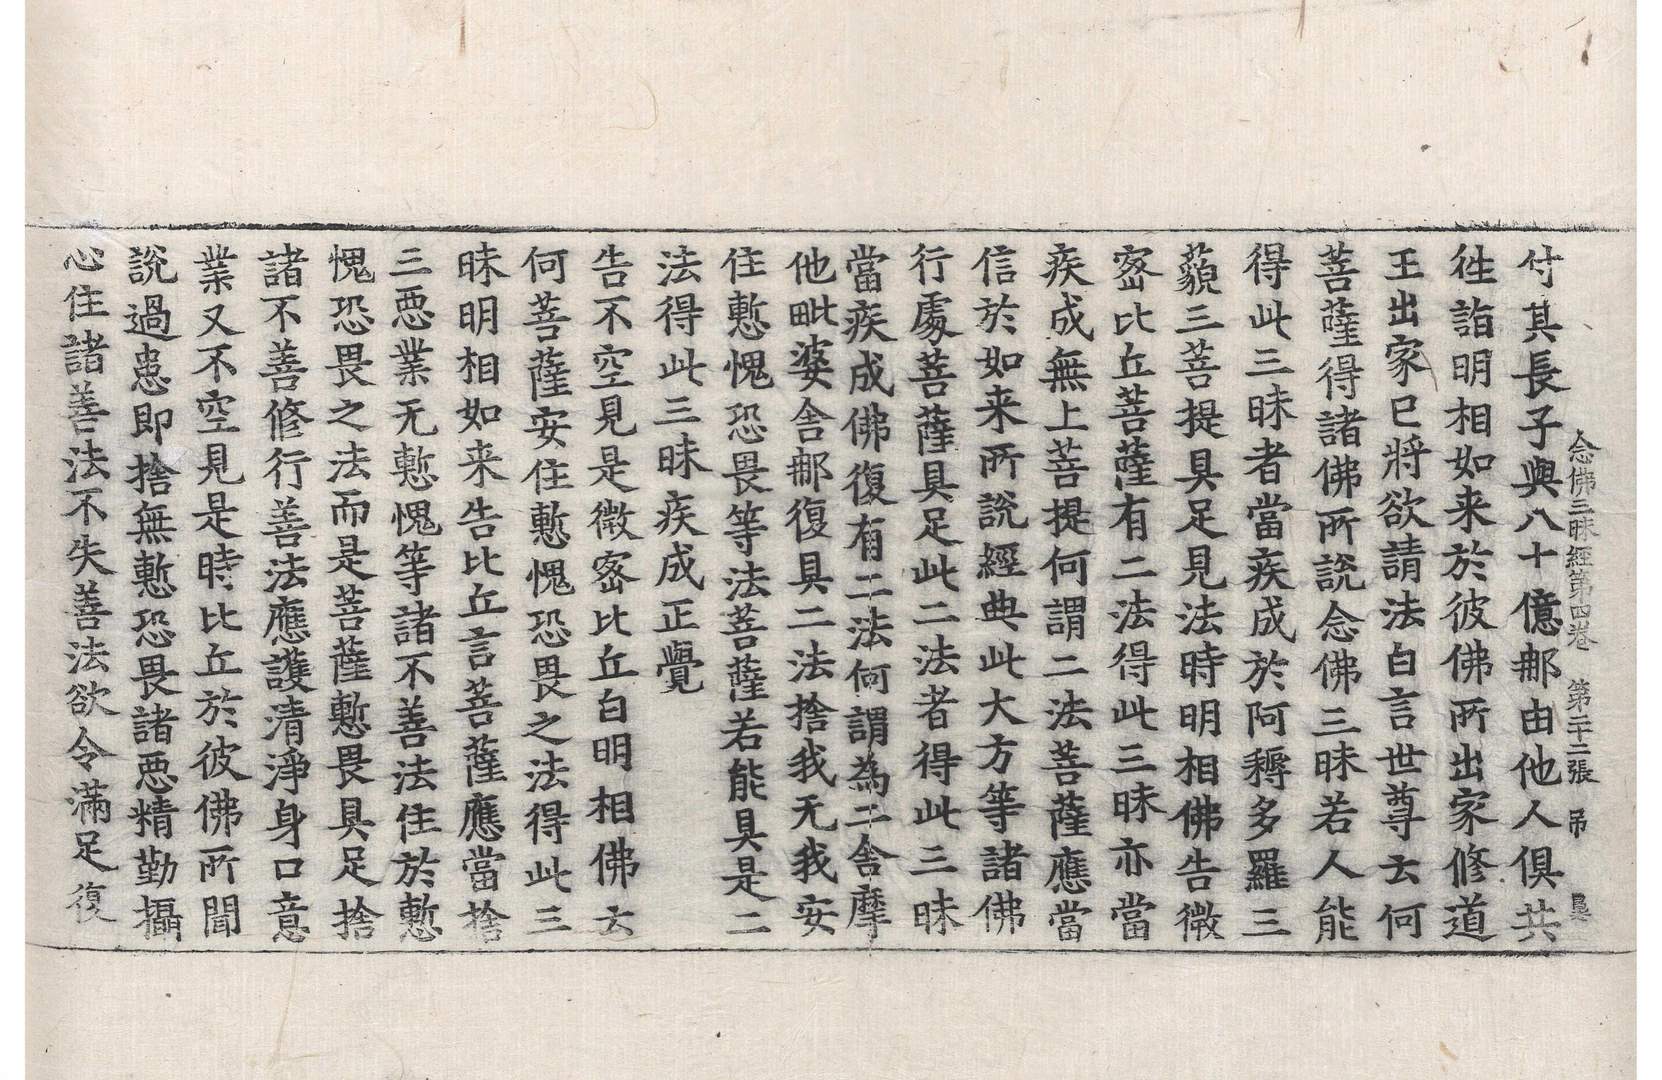 念佛三昧經第四卷 第二十二張 吊
付其長子與八十億那由他人俱共
徃詣明相如来於彼佛所出家修道
王出家已將欲請法白言世尊云何
菩薩得諸佛所說念佛三昧若人能
得此三昧者當疾成於阿耨多羅三
藐三菩提具足見法時明相佛告微
宻比丘菩薩有二法得此三昧亦當
疾成無上菩提何謂二法菩薩應當
信於如来所說經典此大方等諸佛
行處菩薩具足此二法者得此三昧
當疾成佛復有二法何謂為二舍摩
他毗婆舍那復具二法捨我无我安
住慙愧恐畏等法菩薩若能具是二
法得此三昧疾成正覺
告不空見是微宻比丘白明相佛云
何菩薩安住慙愧恐畏之法得此三
昧明相如来告比丘言菩薩應當捨
三惡業无慙愧等諸不善法住於慙
愧恐畏之法而是菩薩慙畏具足捨
諸不善修行善法應護清淨身口意
業又不空見是時比丘於彼佛所聞
說過患即捨無慙恐畏諸惡精勤攝
心住諸善法不失善法欲令滿足復